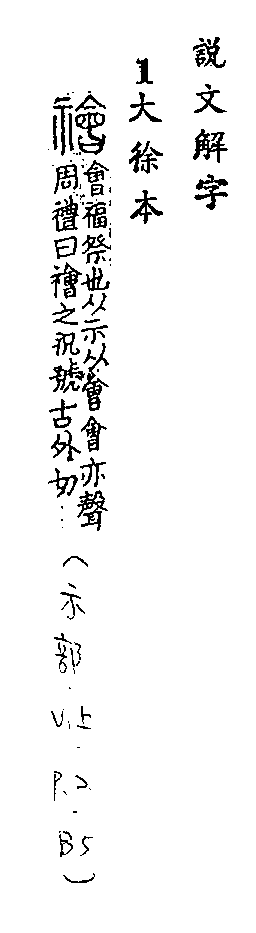 説文解字
1大徐本
禬會福祭也从示从會會亦聲
周禮曰禬之祝號古外切⋯
(示部.V.上.P.2.B5)